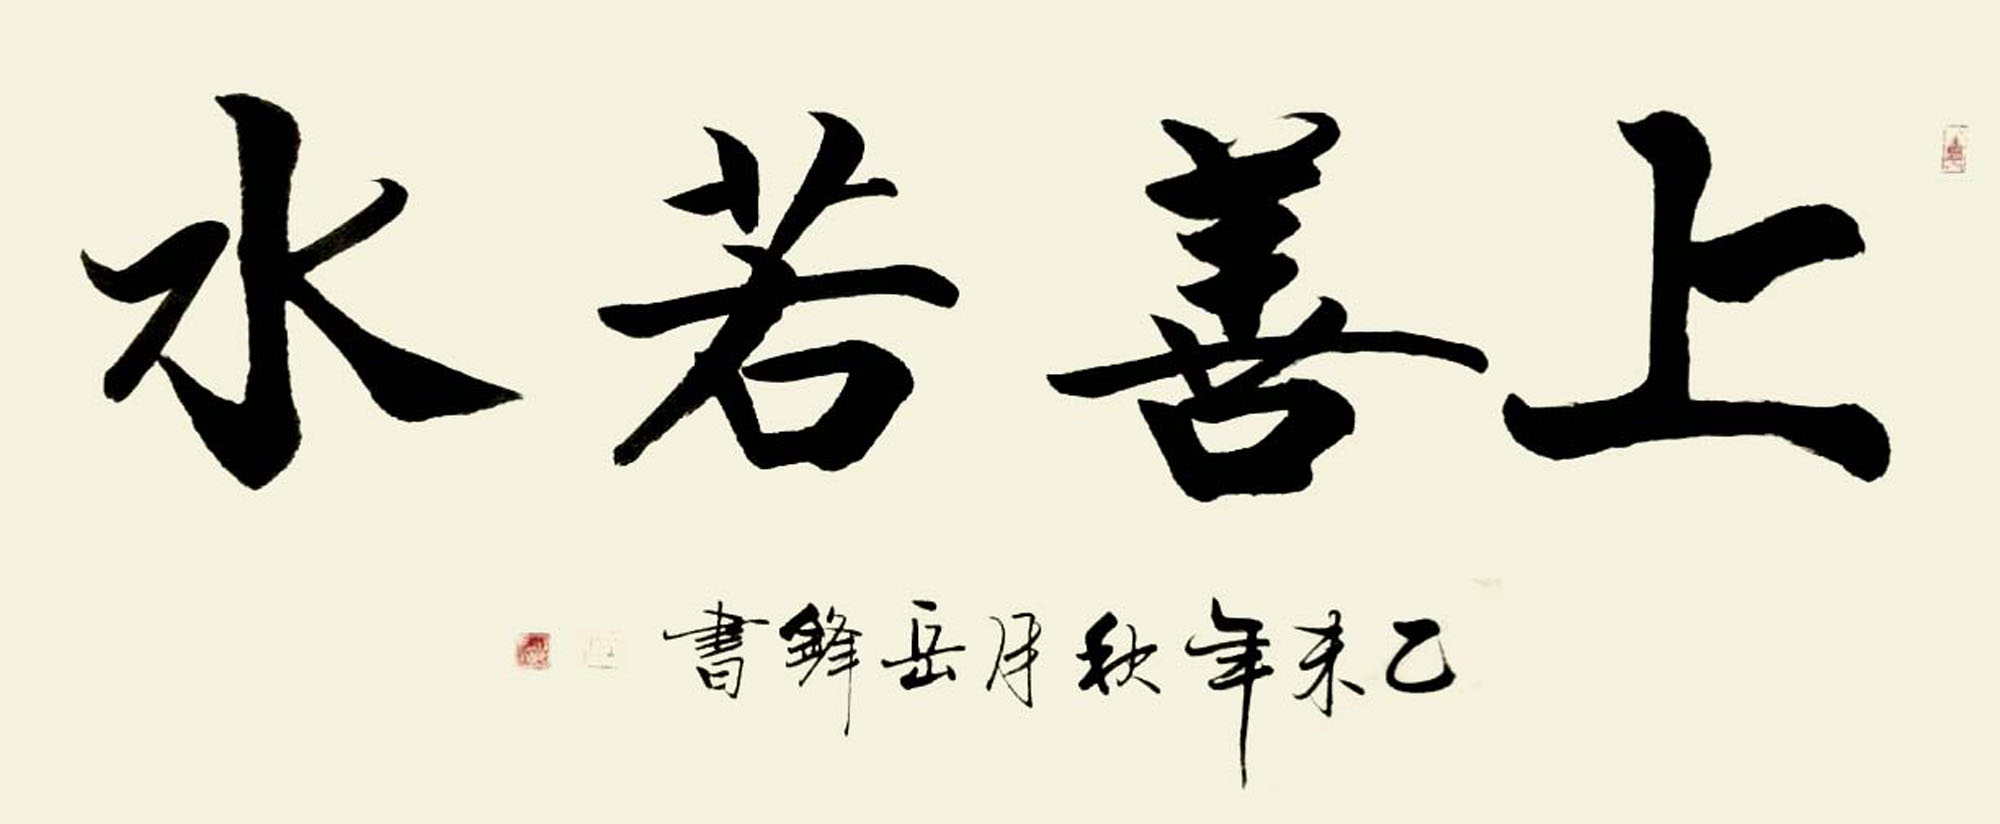 上善若水
乙未年秋月岳鋒書